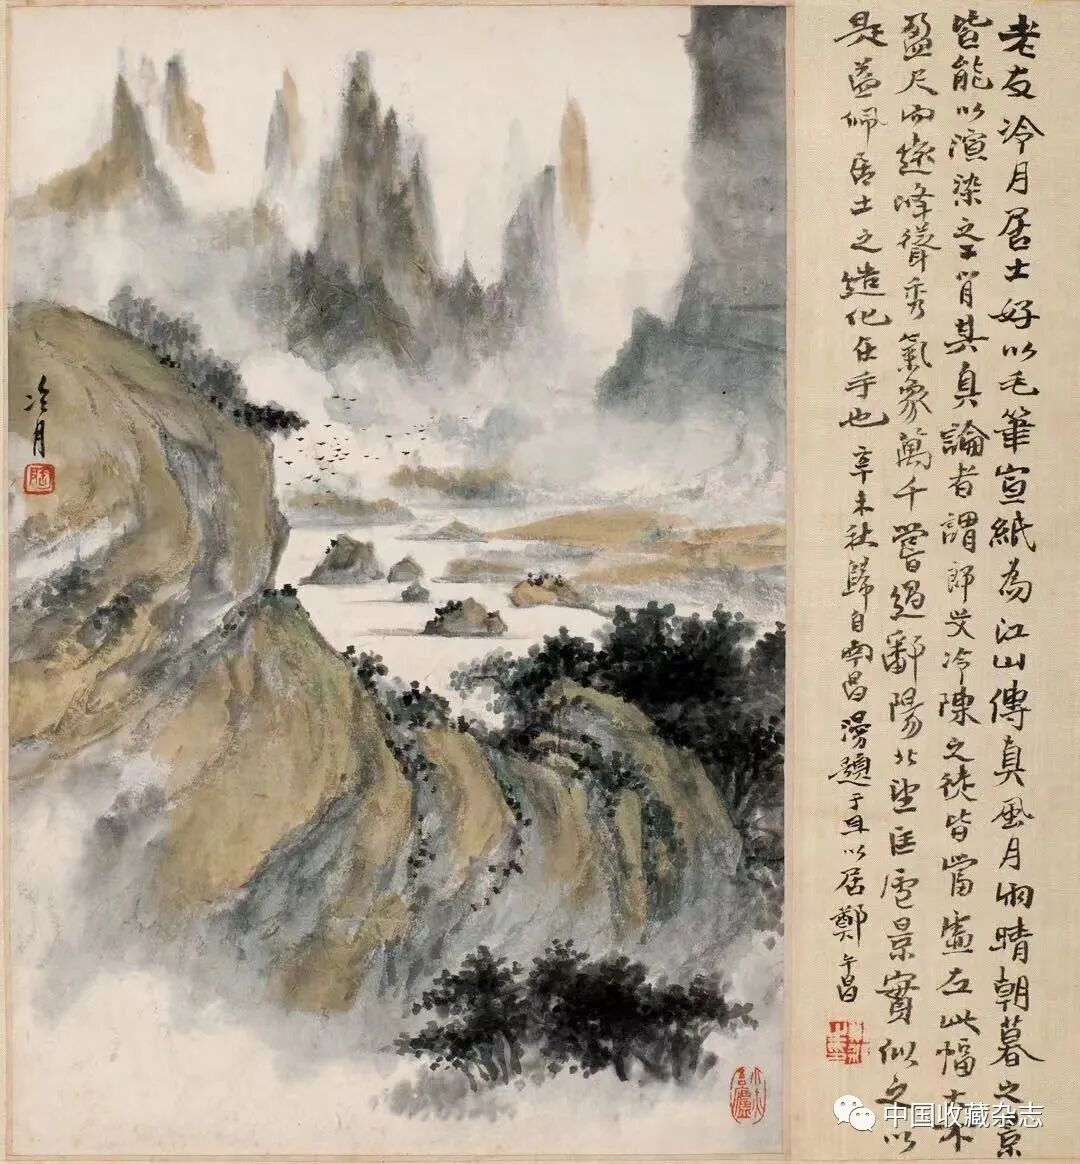 老友冷月居士好以毛筆宣紙為江山傳真風月雨晴朝暮之景
皆能以渲染之工肖其真論者謂郎艾冷陳之徒皆當虛左此幅大不
盈尺而遠峰聳秀氣象萬千嘗過鄱陽北望匡廬景實似之以
是益佩居士之造化在手也 辛未秋歸自南昌漫題于且以居鄭午昌
冷月
陶
中国收藏杂志